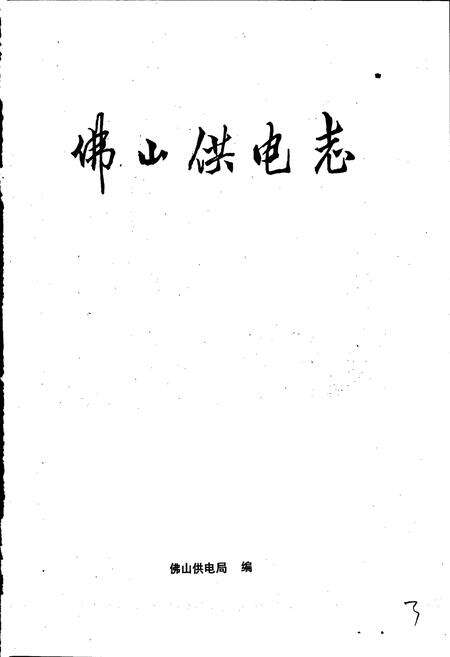 佛山供电志
佛山供电局 编